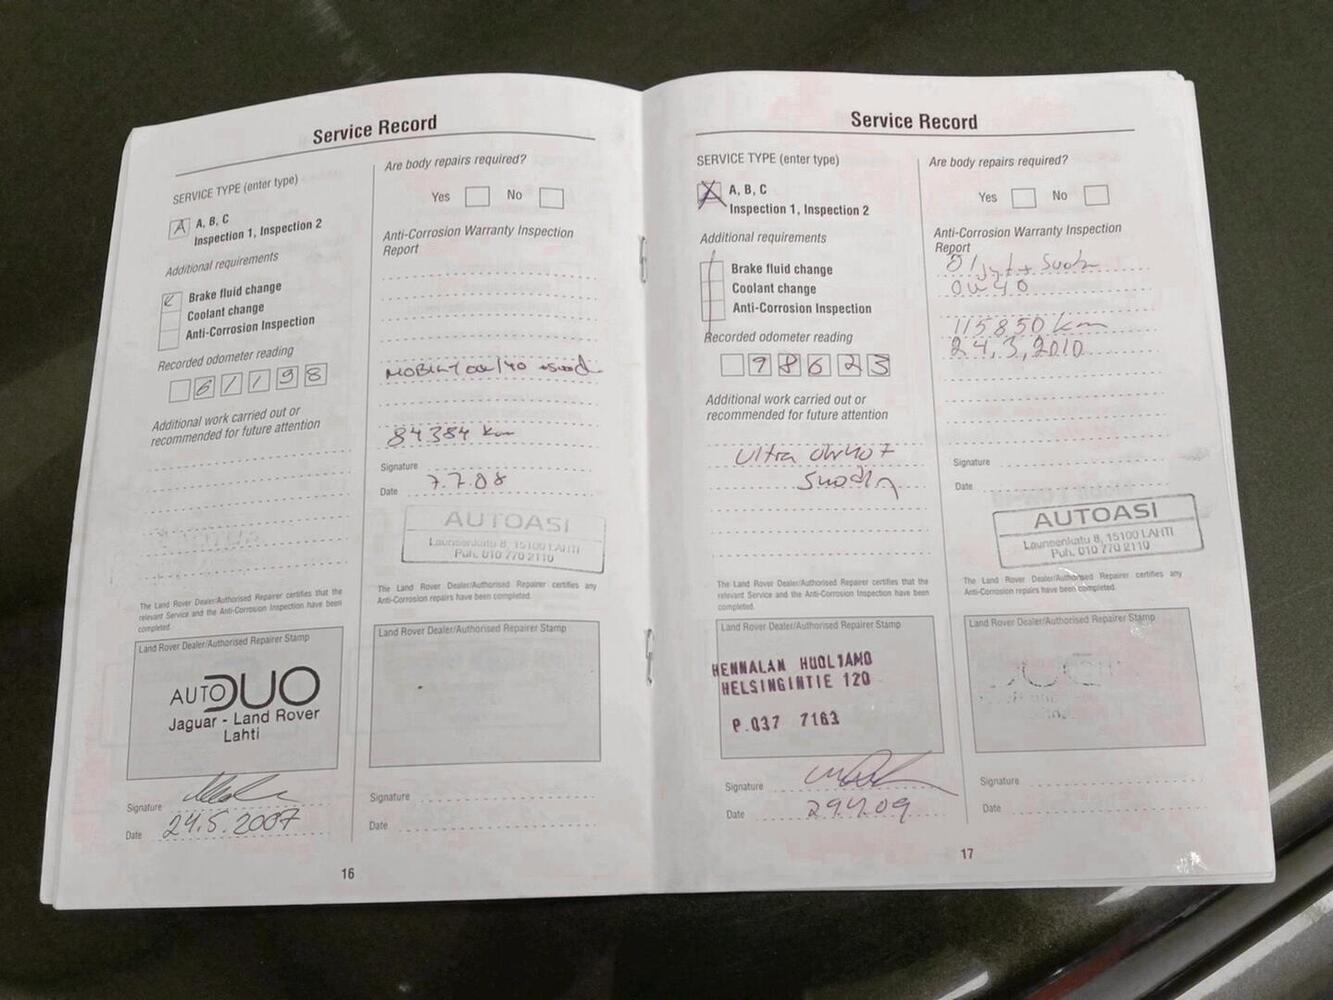 Service Record
SERVICE TYPE (enter type)
A
A, B, C
Inspection 1, Inspection 2
Additional requirements
Brake fluid change
Coolant change
Anti-Corrosion Inspection
Recorded odometer reading
61198
Additional work carried out or
recommended for future attention
The Land Rover Dealer/Authorised Repairer certifies that the
relevant Service and the Anti-Corrosion Inspection have been
completed.
Land Rover Dealer/Authorised Repairer Stamp
AUTODUO
Jaguar - Land Rover
Lahti
Signature
Date 24.5.2007
Are body repairs required?
Yes No
Anti-Corrosion Warranty Inspection
Report
84384 km
Signature
Date 7.7.08
AUTOASI
Launeenkatu 8, 15100 LAHTI
Puh. 010 770 2110
The Land Rover Dealer/Authorised Repairer certifies any
Anti-Corrosion repairs have been completed.
Land Rover Dealer/Authorised Repairer Stamp
Signature
Date
16
Service Record
SERVICE TYPE (enter type)
A, B, C
Inspection 1, Inspection 2
Additional requirements
Brake fluid change
Coolant change
Anti-Corrosion Inspection
Recorded odometer reading
98623
Additional work carried out or
recommended for future attention
Ultra
The Land Rover Dealer/Authorised Repairer certifies that the
relevant Service and the Anti-Corrosion Inspection have been
completed.
Land Rover Dealer/Authorised Repairer Stamp
HENNALAN HUOLTAMO
HELSINGINTIE 120
P.037 7163
Signature
Date
Are body repairs required?
Yes No
Anti-Corrosion Warranty Inspection
Report
0W40
115850 km
24,3,2010
Signature
Date
AUTOASI
Launeenkatu 8, 15100 LAHTI
Puh. 010 770 2110
The Land Rover Dealer/Authorised Repairer certifies any
Anti-Corrosion repairs have been completed.
Land Rover Dealer/Authorised Repairer Stamp
Signature
Date
17